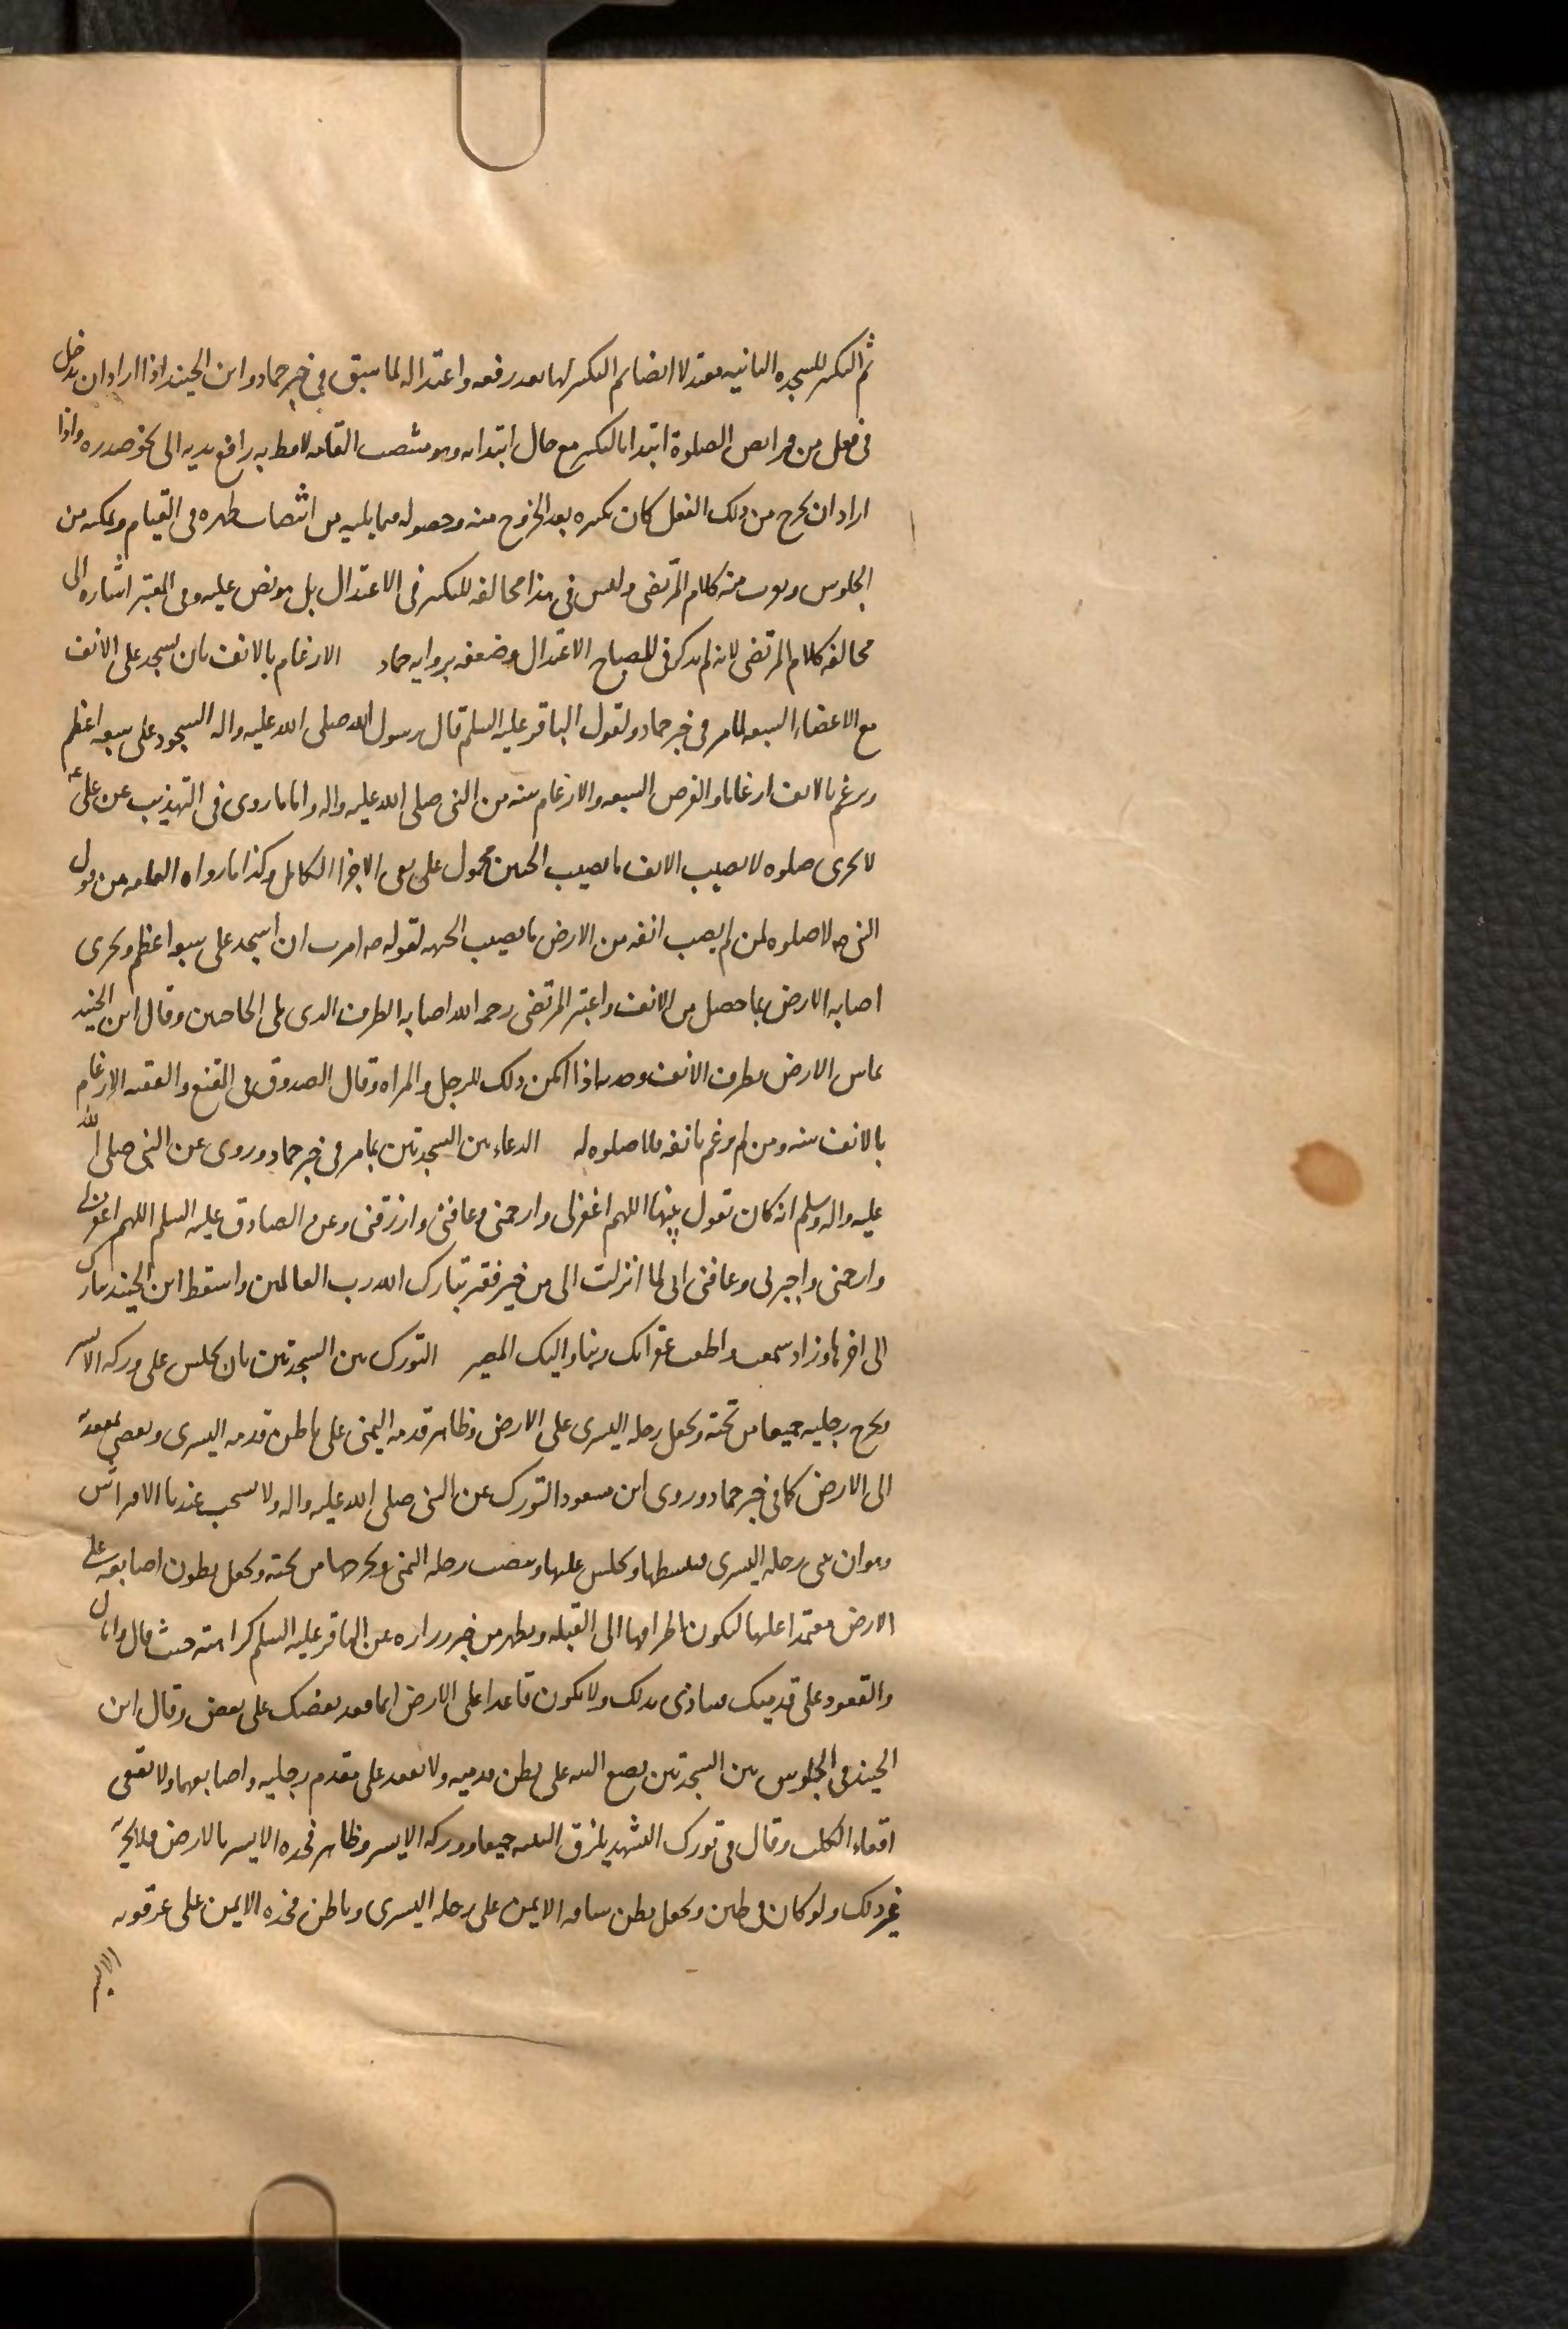 ثم التكبير للسجدة الثانية معتدلا ايضا ثم التكبير لها بعد رفعه واعتداله لما سبق في خبر حماد وابن الجنيد اذا اراد ان يدخل
في فعل من فرائض الصلوة ابتدا بالتكبير مع حال ابتدائه وهو منتصب القامة لافظ به رافع يديه الى نحو صدره واذا
اراد ان يخرج من ذلك الفعل كان تكبيره بعد الخروج منه وحصوله فيما يليه من انتصاب ظهره في القيام وتمكنه من
الجلوس ويقرب منه كلام المرتضى وليس في هذا مخالفة للتكبير في الاعتدال بل هو نص عليه وفي المعتبر اشارة الى
مخالفة كلام المرتضى لانه لم يذكر في المصباح الاعتدال وضعفه برواية حماد الارغام بالانف بان يسجد على الانف
مع الاعضاء السبعة لما مر في خبر حماد ولقول الباقر عليه السلم قال رسول الله صلى الله عليه واله السجود على سبعة اعظم
ويرغم بالانف ارغاما والفرض السبعة والارغام سنة من النبي صلى الله عليه واله واما ما روى في التهذيب عن علي ع
لا تجزى صلوة لا يصيب الانف ما يصيب الجبين محمول على نفى الاجزا الكامل وكذا ما رواه العامة من قول
النبي ص لا صلوة لمن لم يصب انفه من الارض ما يصيب الجبهة لقوله ص امرت ان اسجد على سبعة اعظم ويجزى
اصابة الارض بما حصل من الانف واعتبر المرتضى رحمه الله اصابة الطرف الذى يلي الحاجبين وقال ابن الجنيد
يماس الارض بطرف الانف وحدبه اذا امكن ذلك للرجل والمراة وقال الصدوق في المقنع والفقيه الارغام
بالانف سنة ومن لم يرغم بانفه فلا صلوة له الدعاء بين السجدتين بما مر في خبر حماد وروى عن النبي صلى الله
عليه واله وسلم انه كان يقول بينهما اللهم اغفر لي وارحمنى وعافنى وارزقنى وعن الصادق عليه السلم اللهم اغفر لي
وارحمنى واجبرني وعافنى اني لما انزلت الى من خير فقير تبارك الله رب العالمين واسقط ابن الجنيد تبارك
الى اخرها وزاد سمعت واطعت غفرانك ربنا واليك المصير التورك بين السجدتين بان يجلس على وركه الايسر
ويخرج رجليه جميعا من تحته ويجعل رجله اليسرى على الارض وظاهر قدمه اليمنى على باطن قدمه اليسرى ويفضي بمقعدته
الى الارض كما في خبر حماد وروى ابن مسعود التورك عن النبي صلى الله عليه واله ولا يستحب عندنا الافتراش
وهو ان يثني رجله اليسرى فيبسطها ويجلس عليها وينصب رجله اليمنى ويخرجها من تحته ويجعل بطون اصابعه على
الارض معتمدا عليها ليكون اطرافها الى القبلة ويظهر من خبر زرارة عن الباقر عليه السلم كراهته حيث قال واياك
والقعود على قدميك فتتاذى بذلك ولا تكون قاعدا على الارض انما قعد بعضك على بعض وقال ابن
الجنيد في الجلوس بين السجدتين يضع اليتيه على بطن قدميه ولا يقعد على مقدم رجليه واصابعهما ولا يقعي
اقعاء الكلب وقال في تورك التشهد يلزق اليتيه جميعا ووركه الايسر وظاهر فخذه الايسر بالارض فلا يجزيه
غير ذلك ولو كان في طين ويجعل بطن ساقه الايمن على رجله اليسرى وباطن فخذه الايمن على عرقوبه